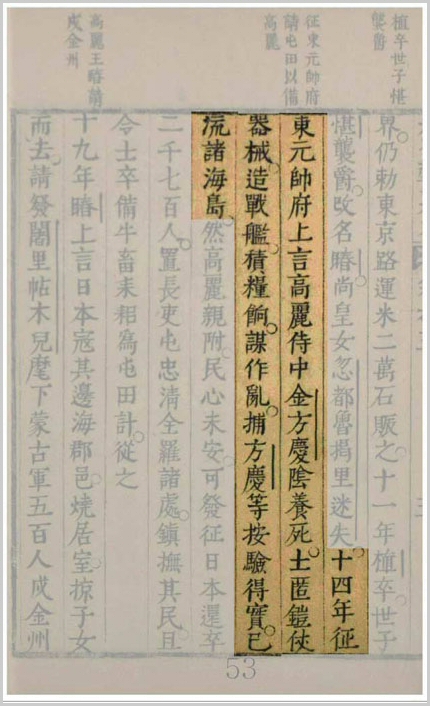 植卒世子愖
襲爵
征東元帥府
請屯田以備
高麗
高麗王睶請
戍金州
界仍勅東京路運米二萬石賑之十一年植卒世子
愖襲爵改名睶尚皇女忽都魯揭里迷失十四年征
東元帥府上言高麗侍中金方慶陰養死士匿鎧仗
器械造戰艦積糧餉謀作亂捕方慶等按驗得實已
流諸海島然高麗親附民心未安可發征日本還卒
二千七百人置長吏屯忠清全羅諸處鎮撫其民且
令士卒備牛畜耒耜為屯田計從之
十九年睶上言日本寇其邊海郡邑燒居室掠子女
而去請發闍里帖木兒麾下蒙古軍五百人戍金州
53